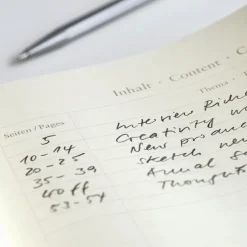 Inhalt · Content · C
Seiten / Pages Thema
5 Interview Rich
10-14 Creativity w
20-25 New produc
35-39 Sketch new
40 ff Annual Sa
53-54 Thoughts